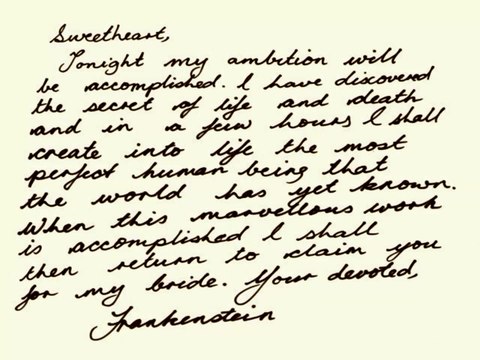 Sweetheart,
Tonight my ambition will
be accomplished. I have discovered
the secret of life and death
and in a few hours I shall
create into life the most
perfect human being that
the world has yet known.
When this marvellous work
is accomplished I shall
then return to claim you
for my bride. Your devoted,
Frankenstein